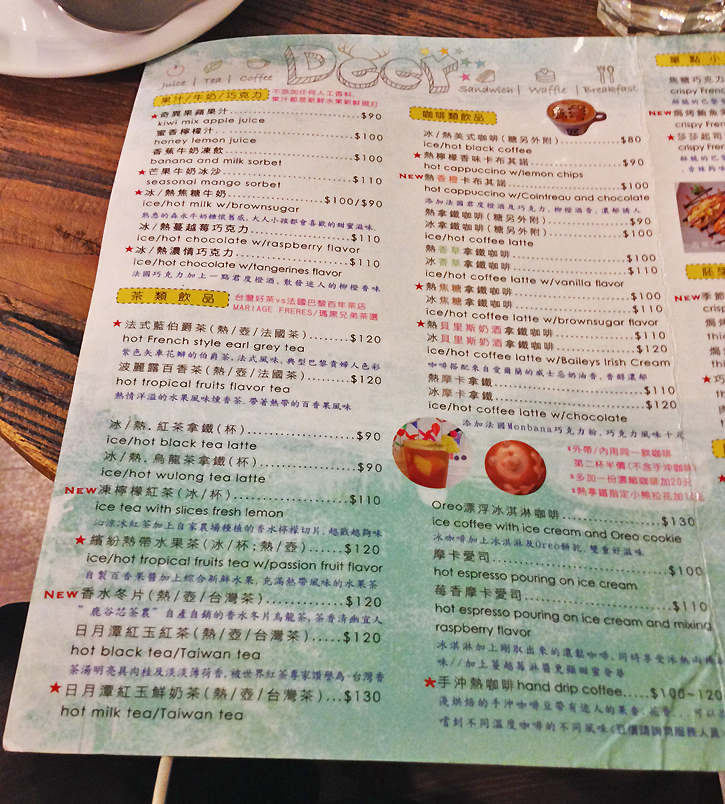 Deer
Juice | Tea | Coffee
Sandwich | Waffle | Breakfast
果汁/牛奶/巧克力
不添加任何人工香料,
果汁都是新鮮水果新鮮現打
★奇異果蘋果汁 $90
kiwi mix apple juice
蜜香檸檬汁 $100
honey lemon juice
香蕉牛奶凍飲 $100
banana and milk sorbet
★芒果牛奶冰沙 $110
seasonal mango sorbet
★冰/熱焦糖牛奶 $100/$90
ice/hot milk w/brownsugar
熟悉的森永牛奶糖懷舊感,大人小孩都會喜歡的甜蜜滋味.
冰/熱蔓越莓巧克力 $110
ice/hot chocolate w/raspberry flavor
★冰/熱濃情巧克力 $110
ice/hot chocolate w/tangerines flavor
法國巧克力加上一點君度橙酒,散發迷人的柳橙香味
茶類飲品
台灣好茶vs法國巴黎百年茶店
MARIAGE FRERES/瑪黑兄弟茶選
★法式藍伯爵茶(熱/壺/法國茶) $120
hot French style earl grey tea
紫色矢車花瓣的伯爵茶,法式風味,典型巴黎貴婦人色彩
波麗露百香茶(熱/壺/法國茶) $120
hot tropical fruits flavor tea
熱情洋溢的水果風味燻香茶,帶著熱帶的百香果風味
冰/熱.紅茶拿鐵(杯) $90
ice/hot black tea latte
冰/熱.烏龍茶拿鐵(杯) $90
ice/hot wulong tea latte
NEW凍檸檬紅茶(冰/杯) $110
ice tea with slices fresh lemon
沁涼冰紅茶加上自家農場種植的香水檸檬切片,越戳越夠味
★繽紛熱帶水果茶(冰/杯;熱/壺) $120
ice/hot tropical fruits tea w/passion fruit flavor
自製百香果醬加上綜合新鮮水果,充滿熱帶風味的水果茶
NEW香水冬片(熱/壺/台灣茶) $120
"鹿谷芯茶農"自產自銷的香水冬片烏龍茶,茶香清幽宜人
日月潭紅玉紅茶(熱/壺/台灣茶) $120
hot black tea/Taiwan tea
茶湯明亮具肉桂及淡淡薄荷香,被世界紅茶專家讚譽為-台灣香
★日月潭紅玉鮮奶茶(熱/壺/台灣茶) $130
hot milk tea/Taiwan tea
咖啡類飲品
冰/熱美式咖啡(糖另外附) $80
ice/hot black coffee
★熱檸檬香味卡布其諾 $90
hot cappuccino w/lemon chips
NEW熱香橙卡布其諾 $100
hot cappuccino w/Cointreau and chocolate
添加法國君度橙酒及巧克力,柳橙酒香,濃郁誘人
熱拿鐵咖啡(糖另外附) $90
冰拿鐵咖啡(糖另外附) $100
ice/hot coffee latte
熱香草拿鐵咖啡 $100
冰香草拿鐵咖啡 $110
ice/hot coffee latte w/vanilla flavor
★熱焦糖拿鐵咖啡 $100
冰焦糖拿鐵咖啡 $110
ice/hot coffee latte w/brownsugar flavor
★熱貝里斯奶酒拿鐵咖啡 $110
冰貝里斯奶酒拿鐵咖啡 $120
ice/hot coffee latte w/Baileys Irish Cream
咖啡搭配來自愛爾蘭的威士忌奶油香,香醇濃郁
熱摩卡拿鐵 $110
冰摩卡拿鐵 $120
ice/hot coffee latte w/chocolate
添加法國Monbana巧克力粉,巧克力風味十足
※外帶/內用同一款咖啡
第二杯半價(不含手沖咖啡)
※多加一份濃縮咖啡加20元
※熱拿鐵指定小熊拉花加
Oreo漂浮冰淇淋咖啡 $130
ice coffee with ice cream and Oreo cookie
冰咖啡加上冰淇淋及Oreo餅乾,雙重好滋味
摩卡愛司 $100
hot espresso pouring on ice cream
莓香摩卡愛司 $110
hot espresso pouring on ice cream and mixing
raspberry flavor
冰淇淋加上剛取出來的濃黏咖啡,同時享受冰熱
味//加上蔓越莓淋醬更顯甜蜜奢華
★手沖熱咖啡hand drip coffee $100~120
淺烘焙的手沖咖啡豆帶有迷人的果香.花香...可以
嚐到不同溫度咖啡的不同風味
單點小
焦糖巧克
crispy Fren
NEW焗烤鮪魚
crispy Frenc
★莎莎起司
crispy Frenc
胚
NEW季節